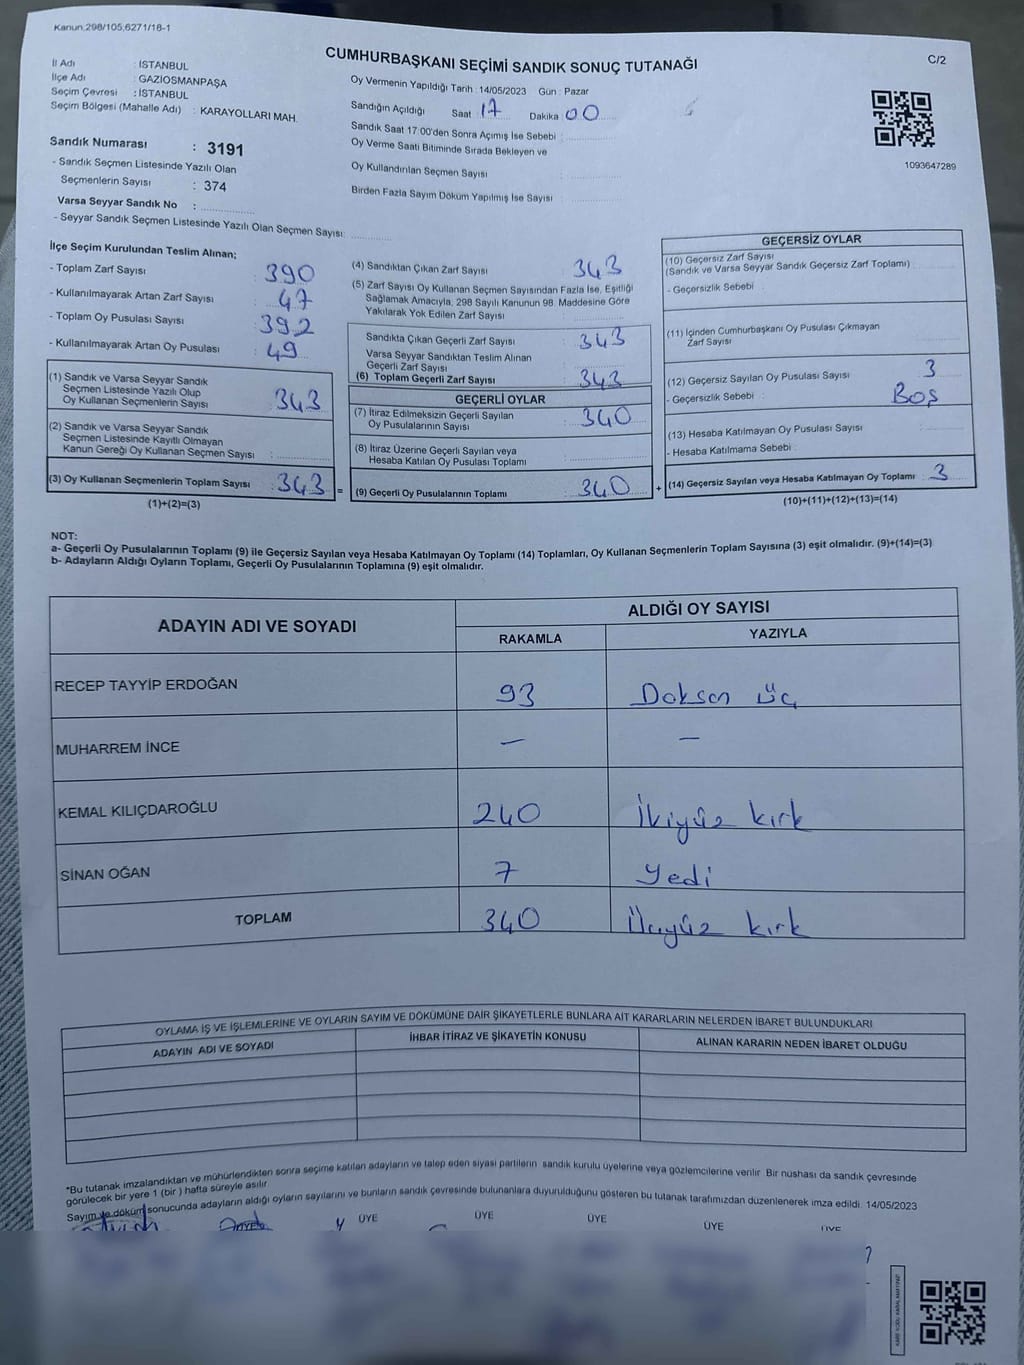 Kanun;298/105,6271/18-1
CUMHURBAŞKANI SEÇİMİ SANDIK SONUÇ TUTANAĞI
C/2
İl Adı : İSTANBUL
İlçe Adı : GAZİOSMANPAŞA
Seçim Çevresi : İSTANBUL
Seçim Bölgesi (Mahalle Adı) : KARAYOLLARI MAH.
Oy Vermenin Yapıldığı Tarih : 14/05/2023 Gün : Pazar
Sandığın Açıldığı Saat 17 Dakika 00
Sandık Saat 17:00'den Sonra Açımış İse Sebebi :
Oy Verme Saati Bitiminde Sırada Bekleyen ve
Oy Kullandırılan Seçmen Sayısı :
Birden Fazla Sayım Döküm Yapılmış İse Sayısı :
1093647289
Sandık Numarası : 3191
- Sandık Seçmen Listesinde Yazılı Olan
Seçmenlerin Sayısı : 374
Varsa Seyyar Sandık No :
- Seyyar Sandık Seçmen Listesinde Yazılı Olan Seçmen Sayısı:
İlçe Seçim Kurulundan Teslim Alınan;
- Toplam Zarf Sayısı 390
- Kullanılmayarak Artan Zarf Sayısı 47
- Toplam Oy Pusulası Sayısı 392
- Kullanılmayarak Artan Oy Pusulası 49
(1) Sandık ve Varsa Seyyar Sandık
Seçmen Listesinde Yazılı Olup
Oy Kullanan Seçmenlerin Sayısı : 343
(2) Sandık ve Varsa Seyyar Sandık
Seçmen Listesinde Kayıtlı Olmayan
Kanun Gereği Oy Kullanan Seçmen Sayısı :
(3) Oy Kullanan Seçmenlerin Toplam Sayısı : 343 =
(1)+(2)=(3)
(4) Sandıktan Çıkan Zarf Sayısı : 343
(5) Zarf Sayısı Oy Kullanan Seçmen Sayısından Fazla İse, Eşitliği
Sağlamak Amacıyla, 298 Sayılı Kanunun 98. Maddesine Göre
Yakılarak Yok Edilen Zarf Sayısı :
Sandıkta Çıkan Geçerli Zarf Sayısı : 343
Varsa Seyyar Sandıktan Teslim Alınan
Geçerli Zarf Sayısı :
(6) Toplam Geçerli Zarf Sayısı : 343
GEÇERLİ OYLAR
(7) İtiraz Edilmeksizin Geçerli Sayılan
Oy Pusulalarının Sayısı : 340
(8) İtiraz Üzerine Geçerli Sayılan veya
Hesaba Katılan Oy Pusulası Toplamı :
(9) Geçerli Oy Pusulalarının Toplamı : 340 +
GEÇERSİZ OYLAR
(10) Geçersiz Zarf Sayısı
(Sandık ve Varsa Seyyar Sandık Geçersiz Zarf Toplamı) :
- Geçersizlik Sebebi :
(11) İçinden Cumhurbaşkanı Oy Pusulası Çıkmayan
Zarf Sayısı :
(12) Geçersiz Sayılan Oy Pusulası Sayısı : 3
- Geçersizlik Sebebi : Boş
(13) Hesaba Katılmayan Oy Pusulası Sayısı :
- Hesaba Katılmama Sebebi :
(14) Geçersiz Sayılan veya Hesaba Katılmayan Oy Toplamı : 3
(10)+(11)+(12)+(13)=(14)
NOT:
a- Geçerli Oy Pusulalarının Toplamı (9) ile Geçersiz Sayılan veya Hesaba Katılmayan Oy Toplamı (14) Toplamları, Oy Kullanan Seçmenlerin Toplam Sayısına (3) eşit olmalıdır. (9)+(14)=(3)
b- Adayların Aldığı Oyların Toplamı, Geçerli Oy Pusulalarının Toplamına (9) eşit olmalıdır.
ADAYIN ADI VE SOYADI
ALDIĞI OY SAYISI
RAKAMLA YAZIYLA
RECEP TAYYİP ERDOĞAN 93 Doksan üç
MUHARREM İNCE — —
KEMAL KILIÇDAROĞLU 240 İkiyüz kırk
SİNAN OĞAN 7 Yedi
TOPLAM 340 Üçyüz kırk
OYLAMA İŞ VE İŞLEMLERİNE VE OYLARIN SAYIM VE DÖKÜMÜNE DAİR ŞİKAYETLERLE BUNLARA AİT KARARLARIN NELERDEN İBARET BULUNDUKLARI
ADAYIN ADI VE SOYADI İHBAR İTİRAZ VE ŞİKAYETİN KONUSU ALINAN KARARIN NEDEN İBARET OLDUĞU
*Bu tutanak imzalandıktan ve mühürlendikten sonra seçime katılan adayların ve talep eden siyasi partilerin sandık kurulu üyelerine veya gözlemcilerine verilir. Bir nushası da sandık çevresinde
görülecek bir yere 1 (bir ) hafta süreyle asılır
Sayım ve döküm sonucunda adayların aldığı oyların sayılarını ve bunların sandık çevresinde bulunanlara duyurulduğunu gösteren bu tutanak tarafımızdan düzenlenerek imza edildi. 14/05/2023
ÜYE ÜYE ÜYE ÜYE ÜYE